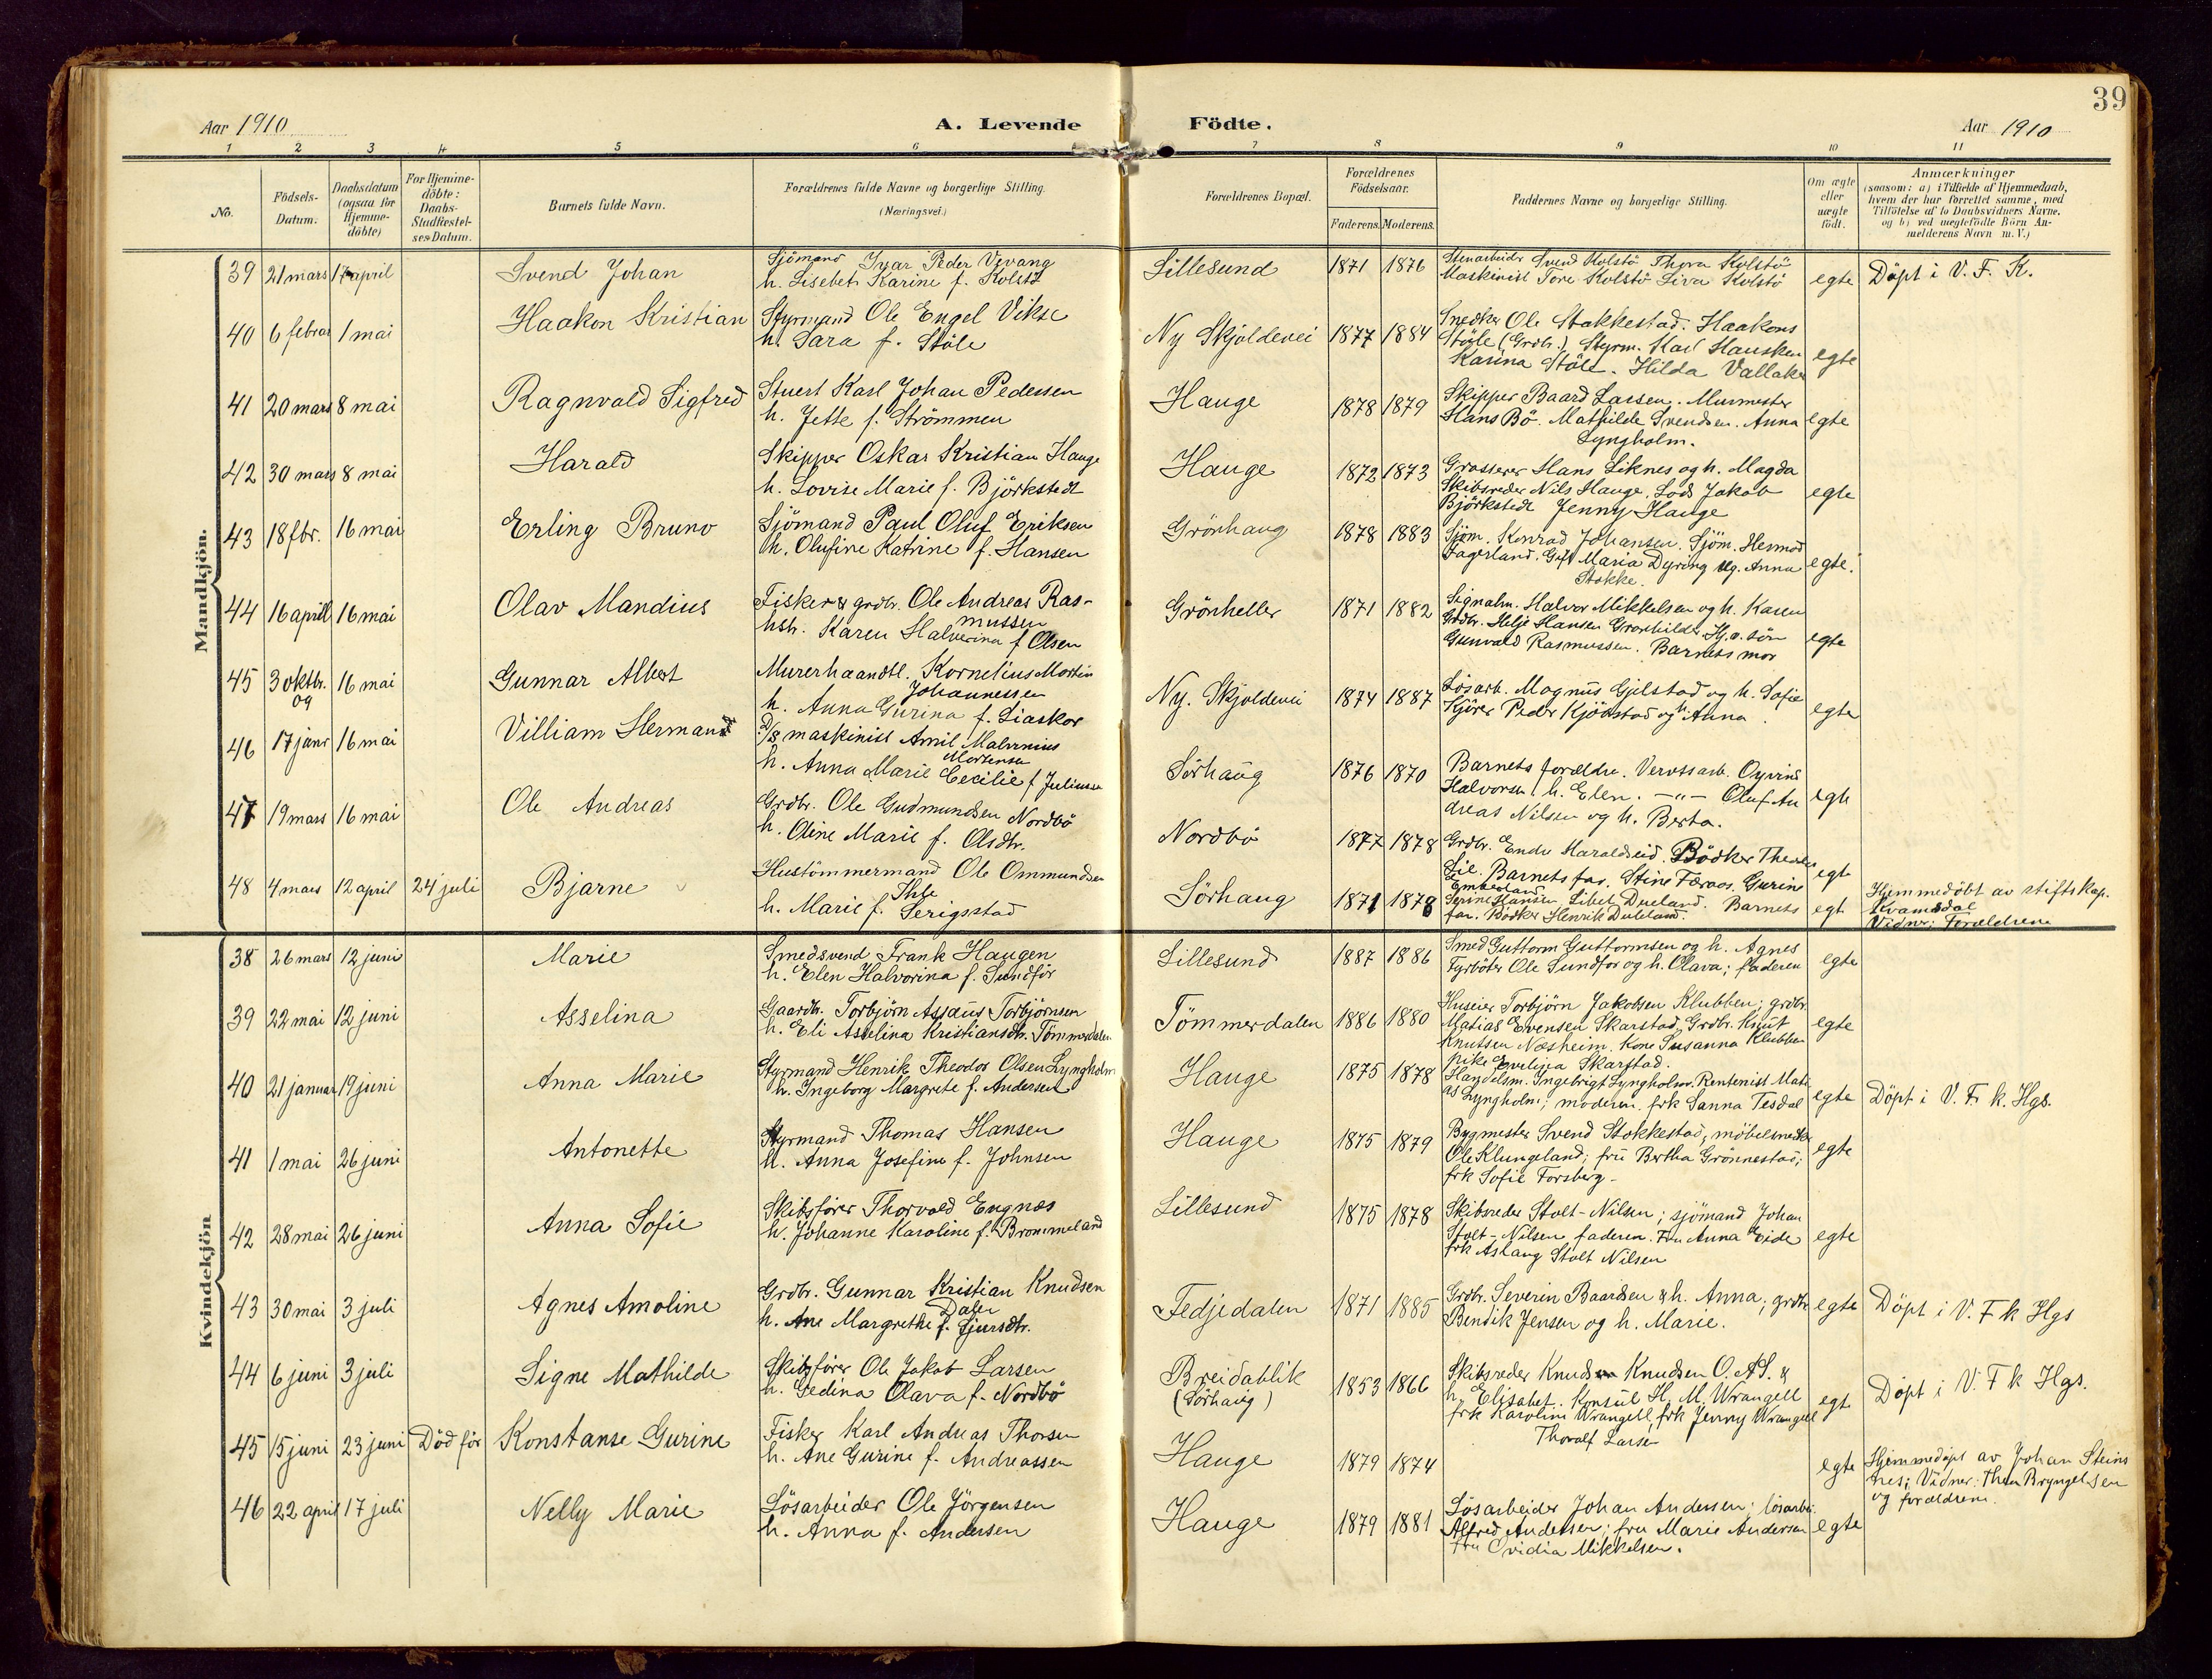 39
Aar 1910
A. Levende Födte.
Aar 1910
1 2 3 4 5 6 7 8 9 10 11
No.
Födsels-Datum.
Daabsdatum (ogsaa for Hjemme-döbte)
For Hjemme-döbte: Daabs-Stadfæstel-ses-Datum.
Barnets fulde Navn.
Forældrenes fulde Navne og borgerlige Stilling.
(Næringsvei.)
Forældrenes Bopæl.
Forældrenes Födselsaar.
Faderens. Moderens.
Faddernes Navne og borgerlige Stilling.
Om ægte eller uægte födt.
Anmærkninger
(saasom: a) i Tilfælde af Hjemmedaab,
hvem der har forrettet samme, med
Tilföielse af to Daabsvidners Navne,
og b) ved uægtefödte Börn An-
melderens Navn m. V.)
Mandkjön.
39 21 mars 17 april Svend Johan
Sjömand Ivar Peder Vevang
h. Lisebet Karine f. Kolstö
Lillesund 1871 1876
Stenarbeider Svend Kolstö Thora Kolstö
Maskinist Tore Kolstö Liva Kolstö
egte Döpt i V. F. K.
40 6 febrar 1 mai Haakon Kristian
Styrmand Ole Engel Vikse
h. Sara f. Stöle
Ny Skjoldevei 1877 1884
Snedker Ole Stakkestad. Haakons
Stöle (Grdbr.) Styrm. Karl Hausken
Karina Stöle. Hilda Vallaker
egte
41 20 mars 8 mai Ragnvald Sigfred
Stuert Karl Johan Pedersen
h. Jette f. Strömmen
Hauge 1878 1879
Skipper Baard Larsen. Murmester
Hans Bö. Mathilde Svendsen. Anna
Lyngholm.
egte
42 30 mars 8 mai Harald
Skipper Oskar Kristian Hauge
h. Lovise Marie f. Björkstedt
Hauge 1872 1873
Grosserer Hans Liknes og h. Magda
Skibsreder Nils Hauge. Lods Jakob
Björkstedt Jenny Hauge
egte
43 18 fbr. 16 mai Erling Bruno
Sjömand Paul Oluf Eriksen
h. Olufine Katrine f. Hansen
Grönhaug 1878 1883
Sjöm. Konrad Johansen. Sjöm. Hermod
Fagerland. Gift Maria Dyring Ug. Anna
Stokke.
egte.
44 16 april 16 mai Olav Mandius
Fisker & grdbr. Ole Andreas Ras-
mussen
hstr. Karen Halverina f Olsen
Grönheller 1871 1882
Signalm. Halvor Mikkelsen og h. Karen
Grdbr. Helje Hansen Gronhilder Hj.a. sön
Gunvald Rasmussen. Barnets mor
egte
45 3 oktbr. 09 16 mai Gunnar Albert
Murerhaandtl. Kornelius Martin
Johannessen
h. Anna Gurina f. Liaskor
Ny. Skjoldevei 1874 1887
Lösarb. Magnus Gjilstad og h. Sofie
Kjörer Peder Kjölstad og h. Anna.
egte
46 17 janr 16 mai Villiam Herman
D/S maskinist Amil Malvinius
Mortensen
h. Anna Marie Cecilie f Juliussen
Sörhaug 1876 1870
Barnets forældre. Verftsarb. Oyvind
Halvorsen h. Elen. —"— Oluf An
dreas Nilsen og h. Berta.
egte
47 19 mars 16 mai Ole Andreas
Grdbr. Ole Gudmundsen Nordbö
h. Oline Marie f. Olsdtr.
Nordbö 1877 1878
Grdbr. Endre Haraldseid. Bödker Theodor
Lie. Barnets far. Stine Færaos. Gurine
egte
48 4 mars 12 april 24 juli Bjarne
Hustömmermand Ole Ommundsen
Ihle
h. Marie f. Serigstad
Sörhaug 1871 1878
Serine Hansen Sibel Dueland. Barnets
far. Bödker Henrik Dueland.
egte Hjemmedöbt av stiftskap.
Kvamsdal
Vidner: Forældrene
Kvindekjön
38 26 mars 12 juni Marie
Smedsvend Frank Haugen
h. Elen Halvorina f. Sundför
Lillesund 1887 1886
Smed Guttorm Guttormsen og h. Agnes
Fyrböter Ole Sundfor og h. Olava; faderen
egte
39 22 mai 12 juni Asselina
Gaardbr. Torbjörn Assæus Torbjörnsen
h. Eli Asselina Kristiansdtr. Tömmerdalen
Tömmerdalen 1886 1880
Huseier Torbjörn Jakobsen Klubben; grdbr.
Matias Evensen Skarstad. Grdbr. Knut
Knutsen Næsheim. Kone Susanna Klubben
Pike Evelina Skarstad.
egte
40 21 januar 19 juni Anna Marie
Styrmand Henrik Theodor Olsen Lyngholm
h. Ingeborg Margrete f. Andersen
Hauge 1875 1878
Handelsm. Ingebrigt Lyngholm. Rentenist Mati
as Lyngholm; moderen. frk Sanna Tesdal
egte Döpt i V. F. k. Hgs.
41 1 mai 26 juni Antonette
Styrmand Thomas Hansen
h. Anna Josefine f. Johnsen
Hauge 1875 1879
Bygmester Svend Stokkestad, möbelsnedker
Ole Klungeland; fru Bertha Grönnestad;
frk Sofie Forsberg.
egte
42 28 mai 26 juni Anna Sofie
Skibsförer Thorvald Engnæs
h. Johanne Karoline f. Brommeland
Lillesund 1875 1878
Skibsreder Stolt-Nilsen; sjömand Johan
Stolt-Nilsen faderen. Fru Anna Eide
frk Aslaug Stolt Nilsen
egte
43 30 mai 3 juli Agnes Amoline
Grdbr. Gunnar Kristian Knudsen
Dalen
h. Ane Margrethe f. Sjursdtr.
Fedjedalen 1871 1885
Grdbr. Severin Baardsen & h. Anna; grdbr
Bendik Jensen og h. Marie.
egte Döpt i V. F k Hgs
44 6 juni 3 juli Signe Mathilde
Skibsförer Ole Jakob Larsen
h. Gedina Olava f. Nordbö
Breidablik
(Sörhaug)
1853 1866
Skibsreder Knud Knudsen O.AS. &
h. Elisabet. Konsul H. M. Wrangell
frk Karoline Wrangell, frk Jenny Wrangell
Thoralf Larsen
egte Döpt i V. F k Hgs.
45 15 juni 23 juni Död för Konstanse Gurine
Fisker Karl Andreas Thorsen
h. Ane Gurine f. Andreassen
Hauge 1879 1874
egte Hjemmedöpt av Johan Steins
nes; Vidner: Thea Bryngelsen
og forældrene.
46 22 april 17 juli Nelly Marie
Lösarbeider Ole Jörgensen
h. Anna f. Andersen
Hauge 1879 1881
Lösarbeider Johan Andersen; lösarbei.
Alfred Andersen; fru Marie Andersen
fru Ovidia Mikkelsen.
egte